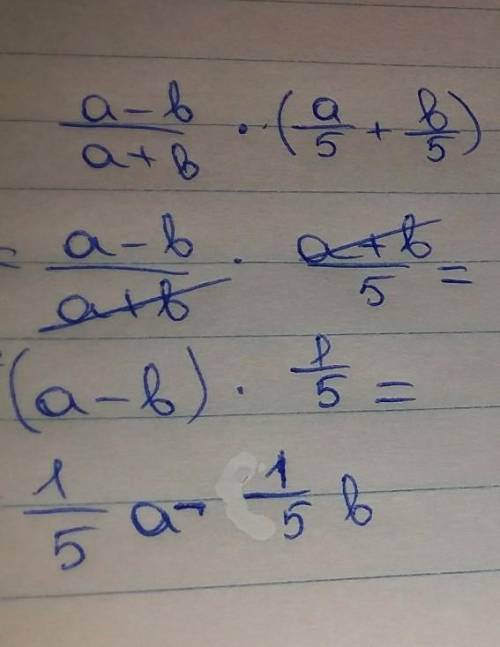 (a-b)/(a+b) · (a/5 + b/5)
= (a-b)/(a+b) · (a+b)/5 =
(a-b) · 1/5 =
1/5 a - 1/5 b